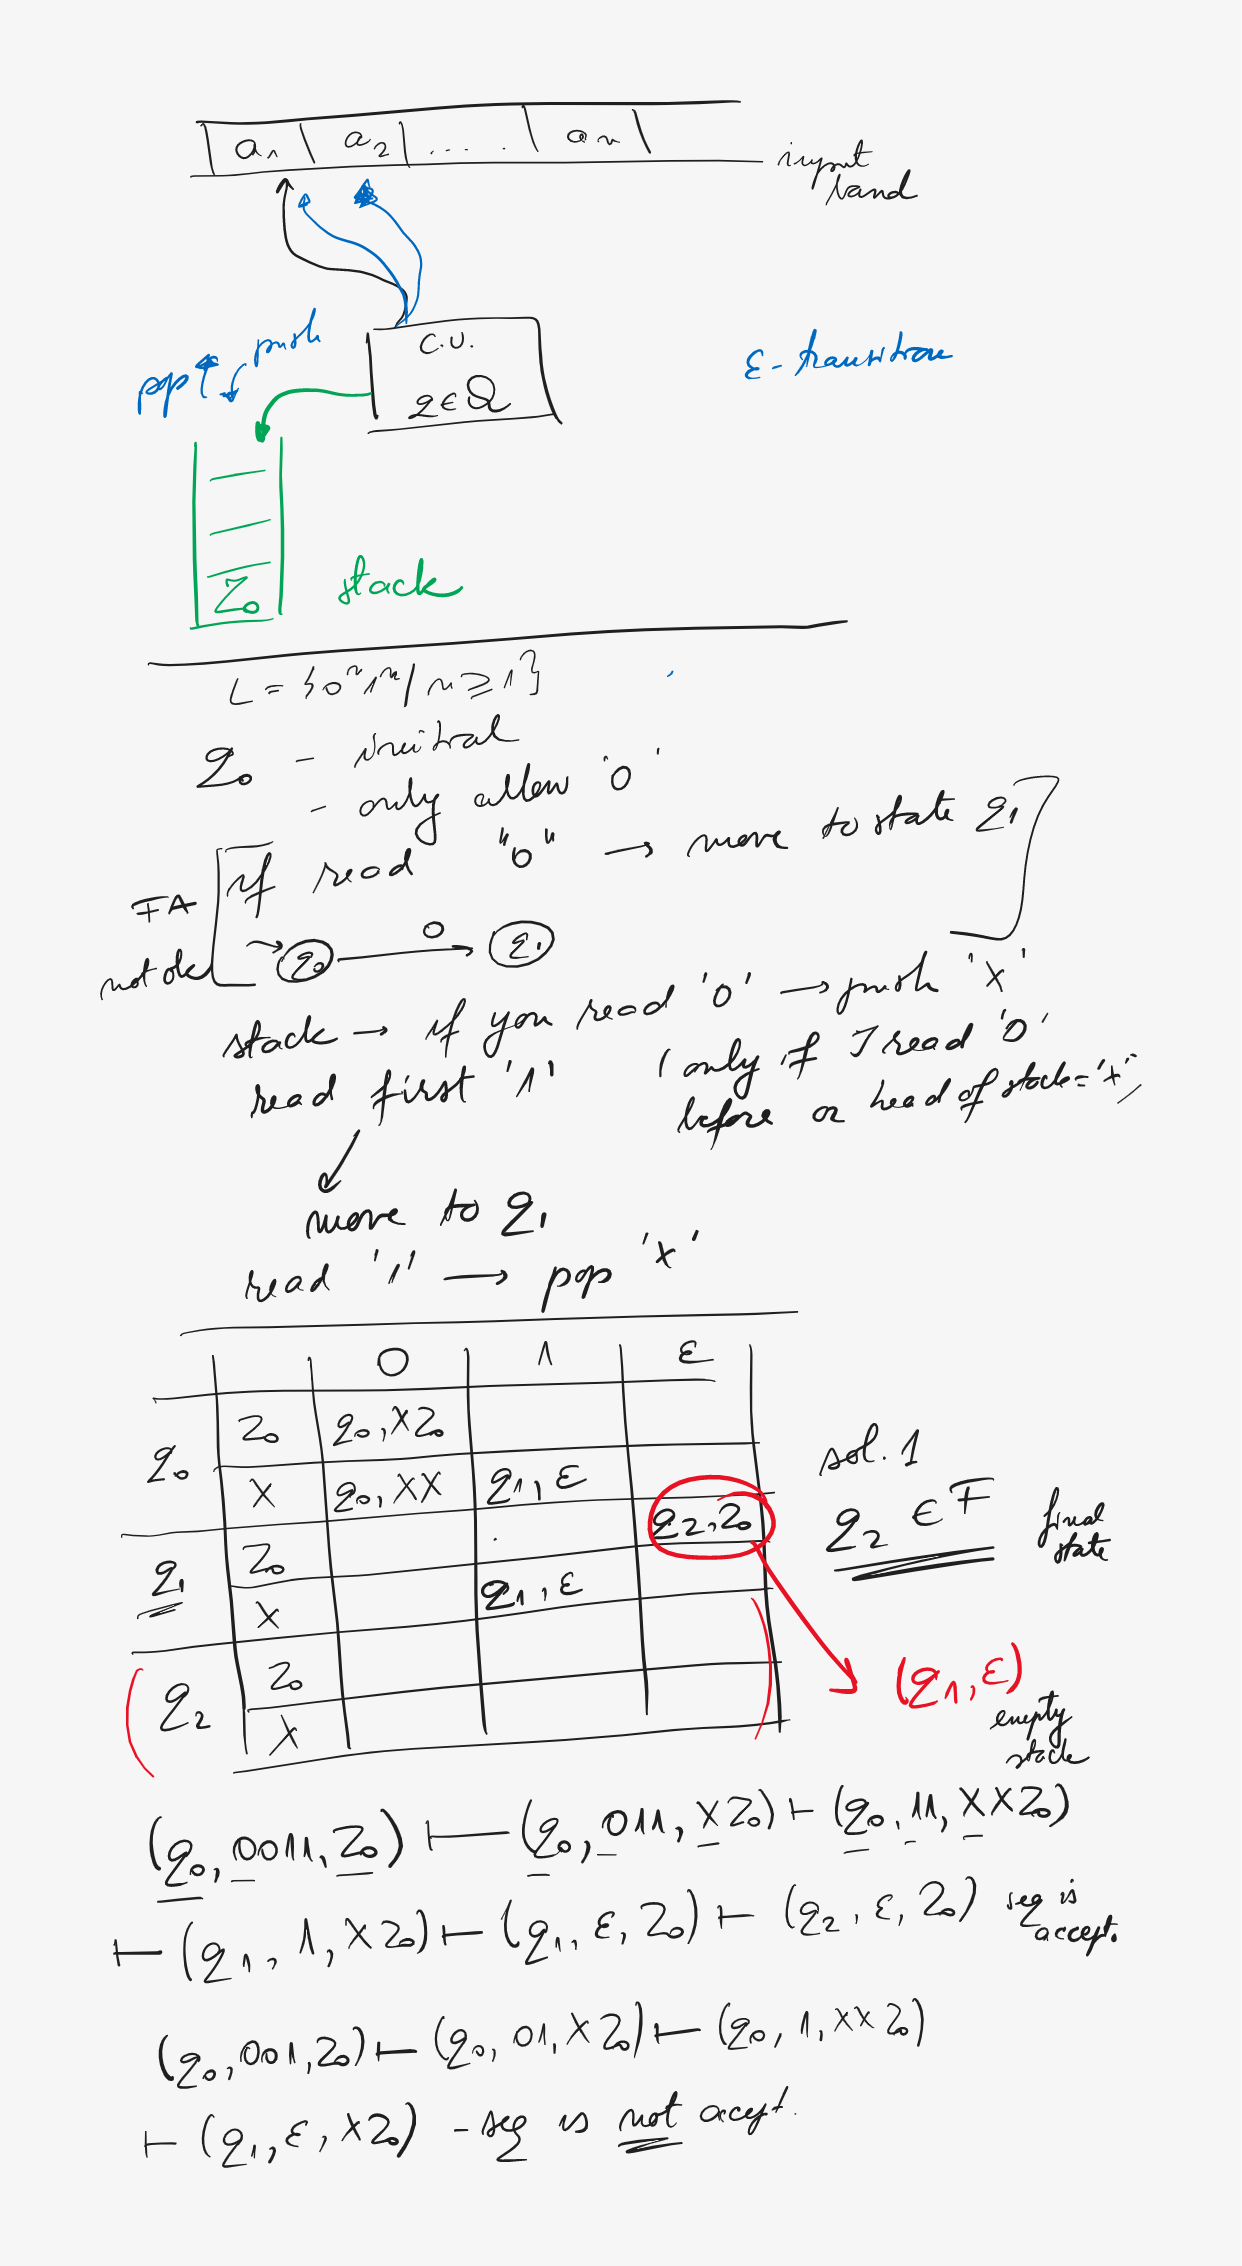 a₁ | a₂ | ..... | aₙ |
input
band
pop push
C.U.
q∈Q
ε-transition
Z₀
stack
L = {0ⁿ1ⁿ / n ≥ 1}
q₀ - initial
- only allow '0'
if read "0" → move to state q₁
FA
not ok
q₀ 0 q₁
stack → if you read '0' → push 'X'
read first '1' (only if I read '0'
before or head of stack='x')
move to q₁
read '1' → pop 'x'
0 1 ε
q₀ Z₀ q₀, XZ₀
X q₀, XX q₁, ε
q₁ Z₀ q₂, Z₀
X q₁, ε
q₂ Z₀
X
sol. 1
q₂ ∈ F final
state
(q₁, ε)
empty
stack
(q₀, 0011, Z₀) ⊢ (q₀, 011, XZ₀) ⊢ (q₀, 11, XXZ₀)
⊢ (q₁, 1, XZ₀) ⊢ (q₁, ε, Z₀) ⊢ (q₂, ε, Z₀) seq is
accept.
(q₀, 001, Z₀) ⊢ (q₀, 01, XZ₀) ⊢ (q₀, 1, XXZ₀)
⊢ (q₁, ε, XZ₀) - seq is not acept.